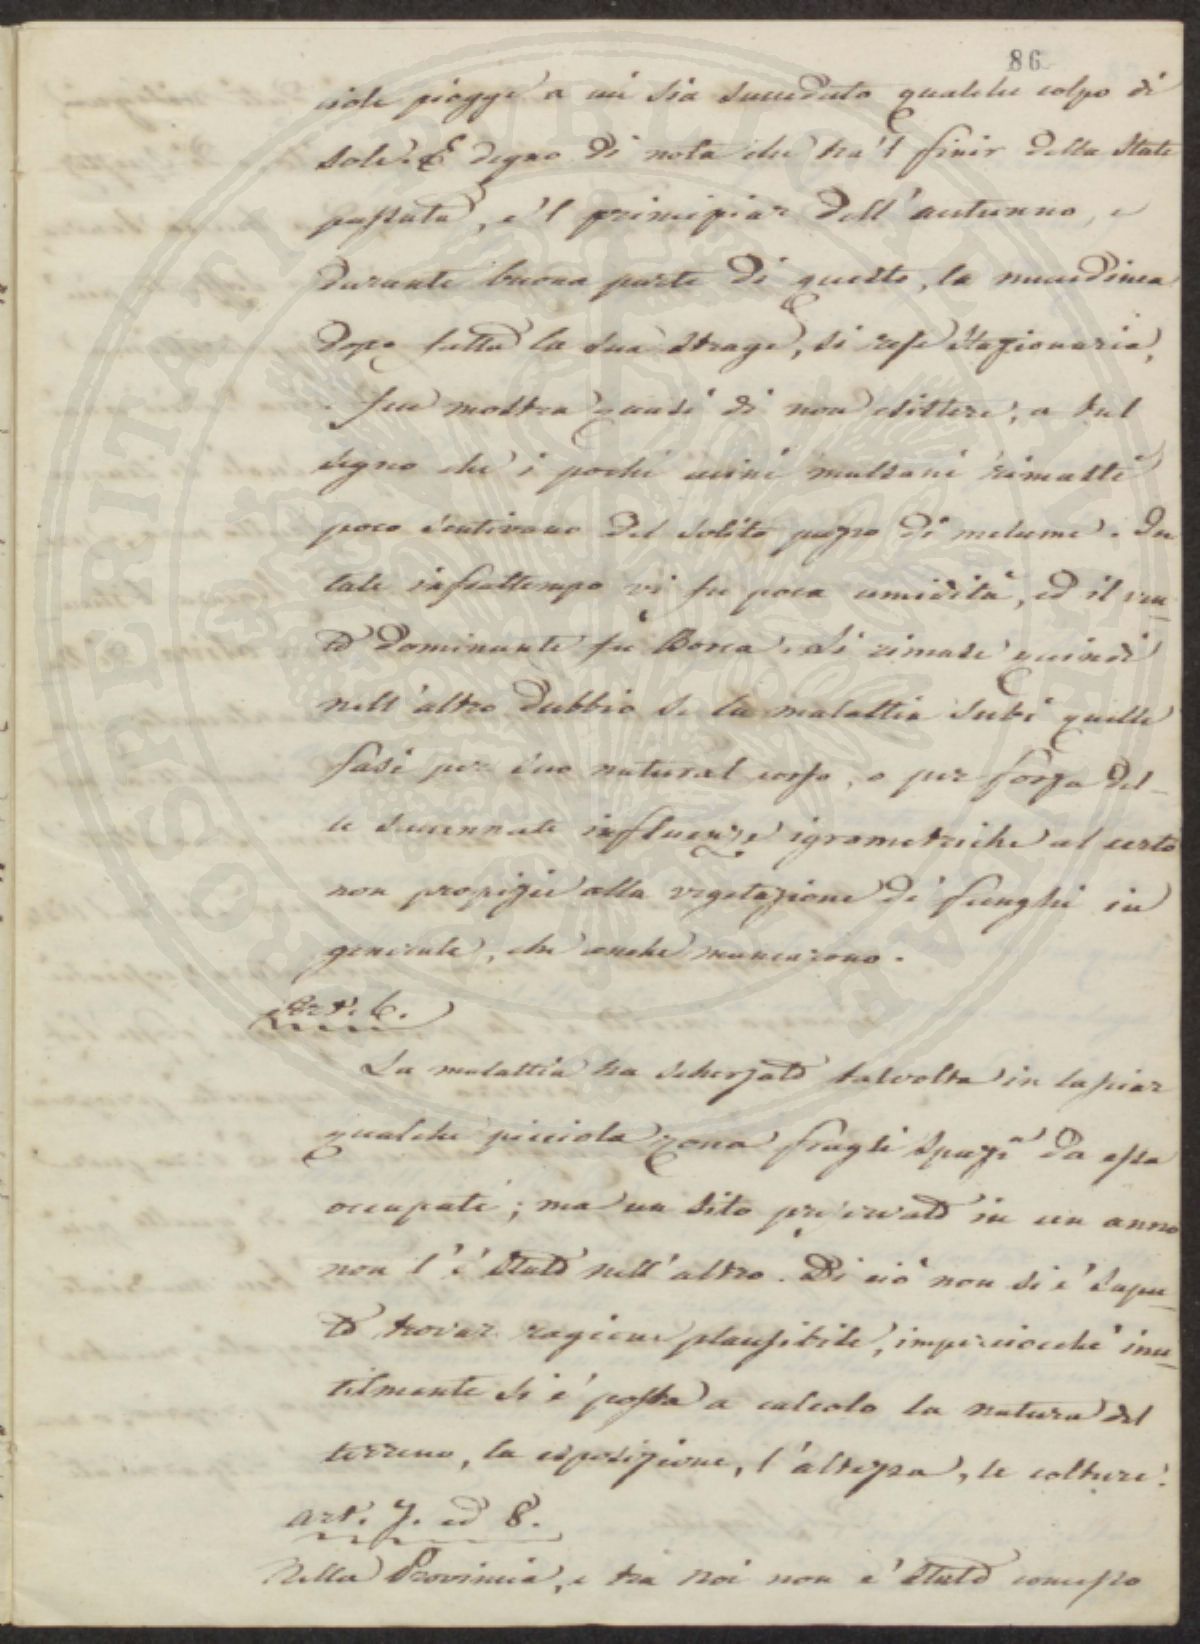 86
ciole piogge a cui sia succeduto qualche colpo di
sole. È degno di nota che tra 'l finir della state
passata, e 'l principiar dell'autunno, e
durante buona parte di questo, la mucedinea
dopo fatto la sua strage, si rese stazionaria,
fece mostra quasi di non esistere, a tal
segno che i pochi acini malsani rimasti
poco sentivano del solito puzzo di melume. In
tale infrattempo vi fu poca umidità, ed il ven-
to dominante fu Borea. Si rimase quindi
nell'altro dubbio se la malattia subì quelle
fasi per suo natural corso, o per forza del-
le succennate influenze igrometriche al certo
non propizie alla vegetazione di funghi in
generale, che anche mancarono.
Art. 6.
La malattia ha scherzato talvolta in lasciar
qualche picciola zona fragli spazi da essa
occupati; ma un sito preservato in un anno
non l'è stato nell'altro. Di ciò non si è sapu-
to trovar ragione plausibile, imperciocchè inu-
tilmente si è posta a calcolo la natura del
terreno, la esposizione, l'altezza, le colture.
Art. 7. ed 8.
Nella Provincia, e tra noi non è stato concesso
PROSPERITATI PVBLICAE